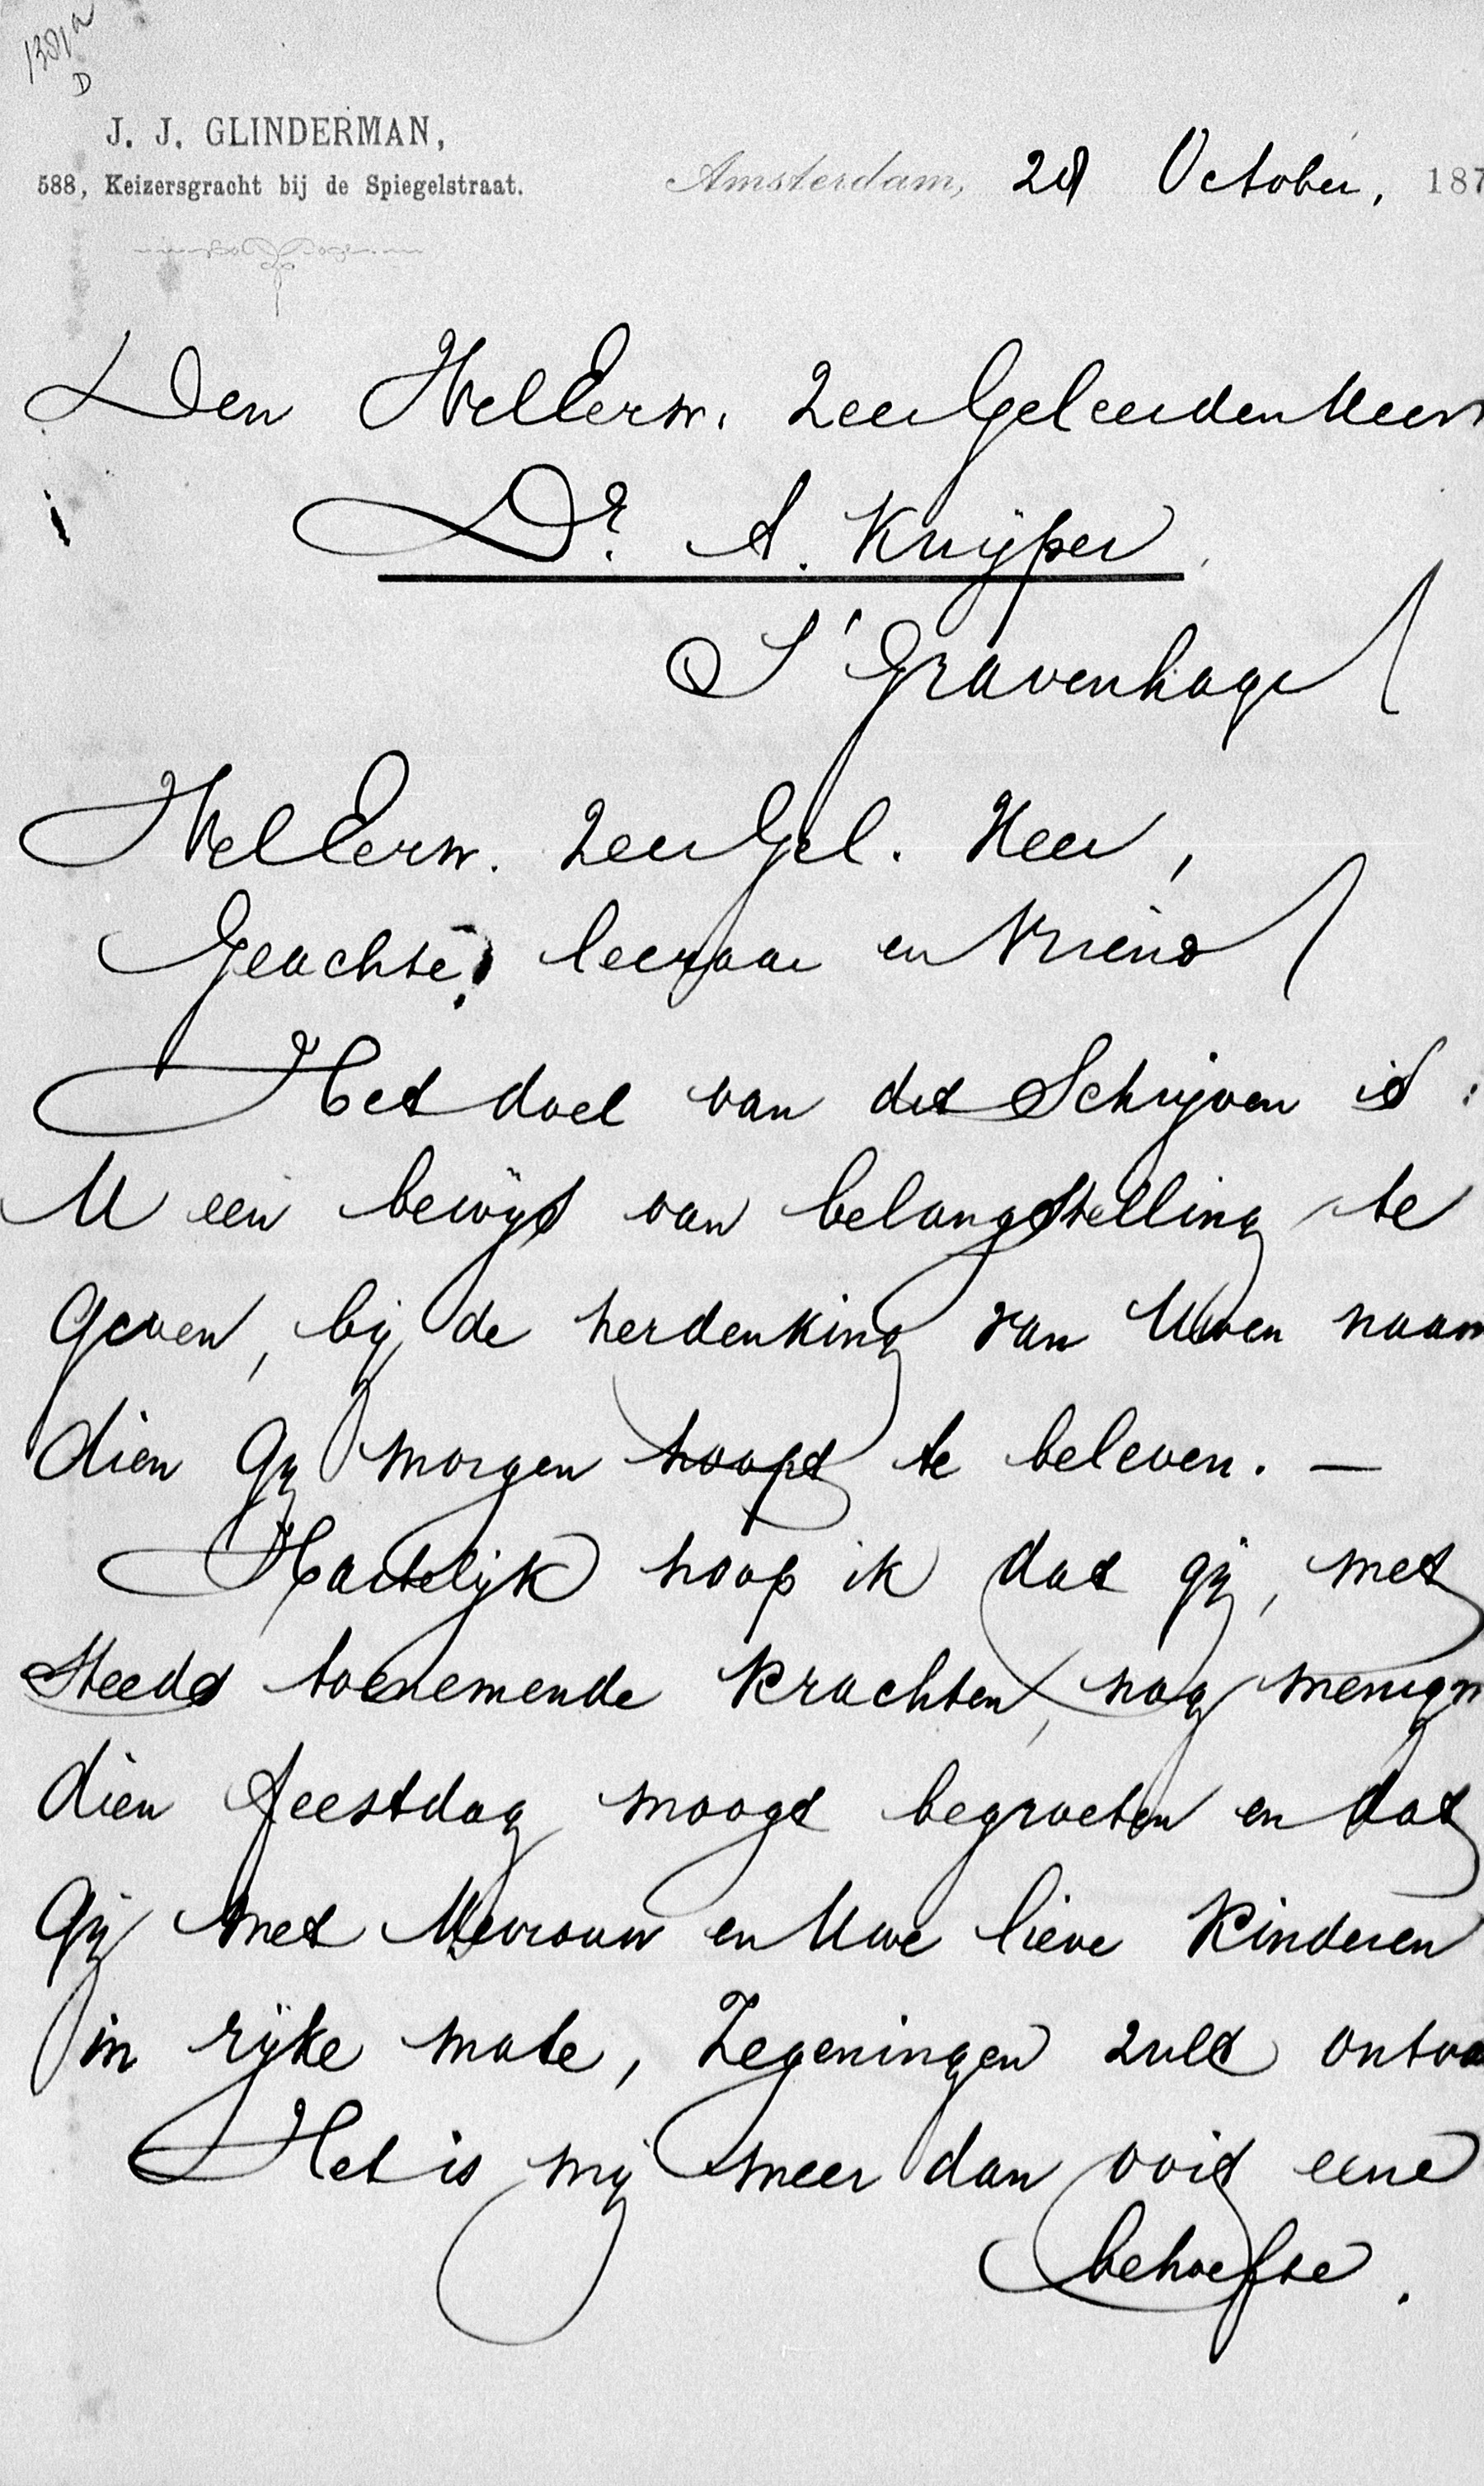 1391a
D
J. J. GLINDERMAN,
588, Keizersgracht bij de Spiegelstraat.
Amsterdam, 28 October, 187
Den WelEerw. ZeerGeleerden Heer
Dr. A. Kuijper
S'Gravenhage
WelEerw. ZeerGel. Heer,
Geachte leeraar en Vriend
Het doel van dit Schrijven is:
U een bewijs van belangstelling te
geven, bij de herdenking van Uwen naam
dien Gij morgen hoopt te beleven. —
Hartelijk hoop ik dat gij, met
Steeds toenemende krachten, nog menigm
dien feestdag moogt begroeten en dat
Gij met Mevrouw en Uwe lieve Kinderen
in rijke mate, Zegeningen zult ontva
Het is mij meer dan ooit eene
behoefte.